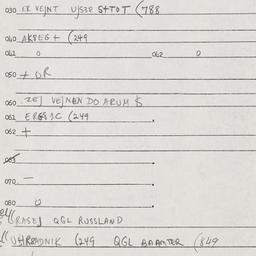 030 ER VEJNT UJSER STTOT (788
040 AKSEG + (249
041 0 042 0
050 + OR
060 ZEJ VEJNEN DO ARUM $
061 ERGS1C (249
062 +
063
070 —
080 0
(RASEJ QGL RUSSLAND
UHRADNIK (249 QGL BAAMTER (849